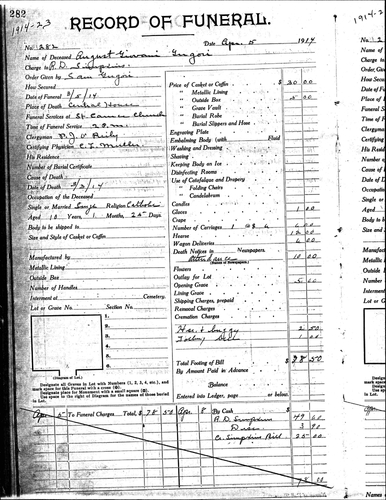 282
1914-23
RECORD OF FUNERAL.
No. 282
Date Apr. 5 1914
Name of Deceased August
Charge to R. D. Simpkins
Order Given by Sam
How Secured
Date of Funeral 3/5/14
Place of Death Central House
Funeral Services at Church
Time of Funeral Service 2 P.M.
Clergyman P. J. O' Reily
Certifying Physician C. L. Mullen
His Residence
Number of Burial Certificate
Cause of Death
Date of Death 3/2/14
Occupation of the Deceased
Single or Married Single Religion Catholic
Aged 10 Years, 1 Months, 25 Days
Body to be shipped to
Size and Style of Casket or Coffin
Manufactured by
Metallic Lining
Outside Box
Number of Handles
Interment at Cemetery.
Lot or Grave No. Section No.
1.
2.
3.
4.
5.
(Diagram of Lot.)
Designate all Graves in Lot with Numbers (1, 2, 3, 4, etc.), and
mark space for this Funeral with a cross
Designate place for Monument with a small square
Space to the right of Diagram for the names of those buried
in Lot.
Price of Casket or Coffin $ 30 00
" Metallic Lining
" Outside Box 5 00
" Grave Vault
" Burial Robe
" Burial Slippers and Hose
Engraving Plate
Embalming Body (with Fluid
Washing and Dressing
Shaving
Keeping Body on Ice
Disinfecting Rooms
Use of Catafalque and Drapery
" Folding Chairs
" Candelabrum
Candles
Gloves 1 00
Crape
Number of Carriages 1 @ $ 4 4 00
Hearse 12 00
Wagon Deliveries 4 00
Death Notices in Newspapers.
Attendance 10 00
(Names of Newspapers.)
Flowers
Outlay for Lot
Opening Grave 5 00
Lining Grave
Shipping Charges, prepaid
Removal Charges
Cremation Charges
Hse & buggy 2 50
Tolling Bell 1 00
Total Footing of Bill $ 78 50
By Amount Paid in Advance
Balance
Entered into Ledger, page or below.
Apr 5 To Funeral Charges Total, $ 78 50 Apr 8 By Cash
R. D. Simpkins 49 60
Disc. 3 90
Co. Simpkins Bill 25 00
78 50